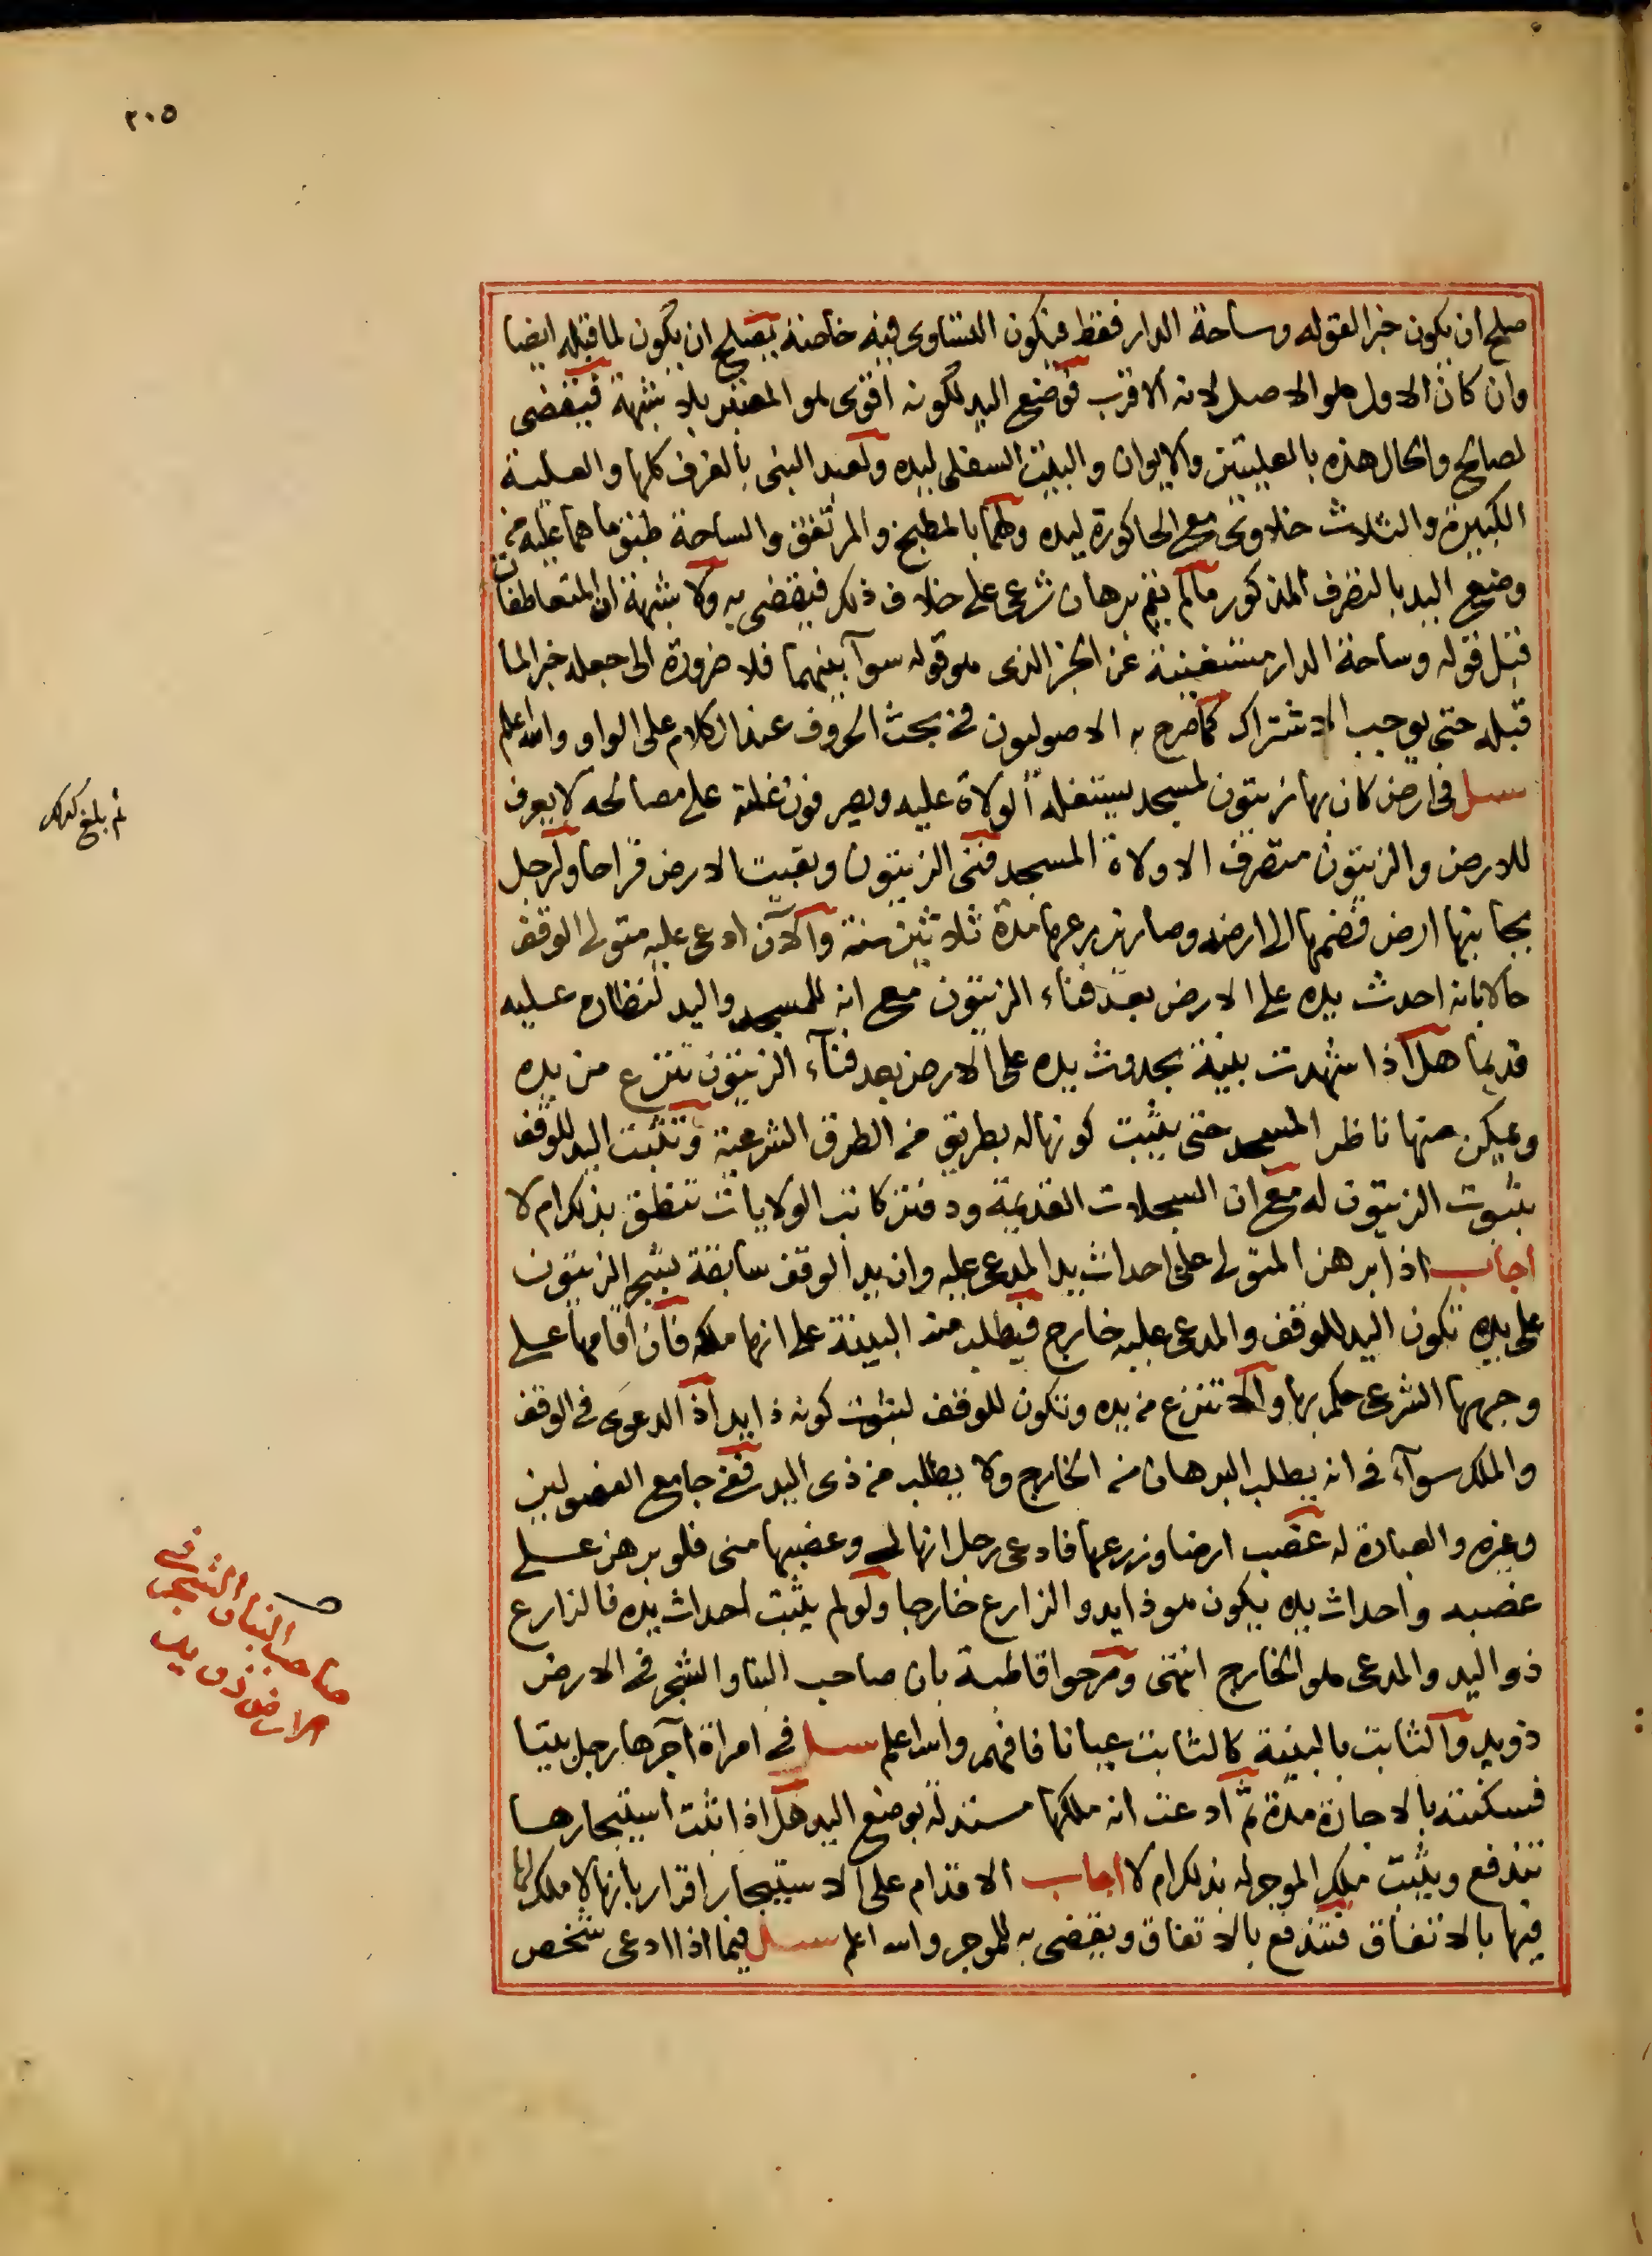 ٢٠٥
صلح ان يكون خبرا لقوله وساحة الدار فقط فيكون التساوى فيه خاصة يصلح ان يكون لما قبله ايضا
وان كان الاول هو الاصل لانه الاقرب فوضع اليد لكونه اقوى هو المعتبر بلا شبهة فيقضى
لصالح والحال هذه بالعليتين والايوان والبيت السفلى ليده ولعبد النبى بالغرف كلها والعلية
الكبيرة والثلاث خلاوى مع الحاكورة ليده ولهما بالمطبخ والمرتفق والساحة طبق ما هما عليه من
وضع اليد بالتصرف المذكور مالم يقم برهان شرعى على خلاف ذلك فيقضى به ولا شبهة ان المتعاطفات
قبل قوله وساحة الدار مستغنية عن الخبر الذى هو قوله سوآ بينهما فلا ضرورة الى جعله خبرا لما
قبله حتى يوجب الاشتراك كما صرح به الاصوليون فى بحث الحروف عند الكلام على الواو والله اعلم
سئل فى ارض كان بها زيتون لمسجد يستغله الولاة عليه ويصرفون غلته على مصالحه لا يعرف
للارض والزيتون متصرف الا ولاة المسجد ففنى الزيتون وبقيت الارض قراحا ولرجل
بجانبها ارض فضمها الى ارضه وصار يزرعها مدة ثلاثين سنة والآن ادعى عليه متولى الوقف
حالا بانه احدث يده على الارض بعد فناء الزيتون مع انه للمسجد واليد لنظاره عليه
قديما هل اذا شهدت بينة بحدوث يده على الارض بعد فنآء الزيتون تنزع من يده
ويمكن منها ناظر المسجد حتى يثبت كونها له بطريق من الطرق الشرعية وتثبت اليد للوقف
بثبوت الزيتون له مع ان السجلات القديمة ودفتر كاتب الولايات تنطق بذلك ام لا
اجاب اذا برهن المتولى على احداث يد المدعى عليه وان يد الوقف سابقة بشجر الزيتون
على يده تكون اليد للوقف والمدعى عليه خارج فيطلب منه البينة على انها ملكه فان اقامها على
وجهها الشرعى حكم بها والا تنزع من يده وتكون للوقف لثبوت كونه ذا يد اذ الدعوى فى الوقف
والملك سوآء فى انه يطلب البرهان من الخارج ولا يطلب من ذى اليد ففى جامع الفصولين
وغيره والعبارة له غصب ارضا وزرعها فادعى رجل انها له وغصبها منى فلو برهن على
غصبه واحداث يده يكون هو ذا يد والزارع خارجا ولو لم يثبت احداث يده فالزارع
ذو اليد والمدعى هو الخارج انتهى وصرحوا قاطبة بان صاحب البنا والشجر فى الارض
ذو يد والثابت بالبينة كالثابت عيانا فافهم والله اعلم سئل فى امرأة آجرها رجل بيتا
فسكنته بالاجارة مدة ثم ادعت انه ملكها مستندة لوضع اليد هل اذا اثبت استيجارها
تندفع ويثبت ملك الموجر له بذلك ام لا اجاب الاقدام على الاستيجار اقرار بانها لا ملك لها
فيها بالاتفاق فتندفع بالاتفاق ويقضى به للموجر والله اعلم سئل فيما اذا ادعى شخص
ثم بلغ كذلك
صاحب البناء والشجر فى
الارض ذو يد